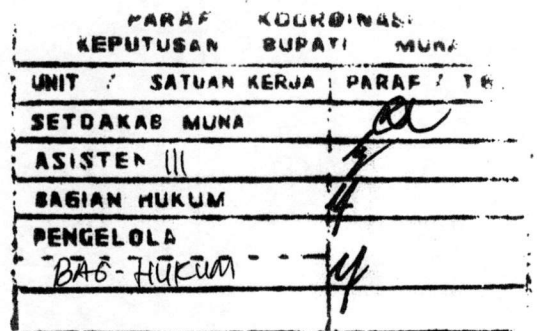 PARAF KOORDINASI
KEPUTUSAN BUPATI MUNA
UNIT / SATUAN KERJA PARAF /
SETDAKAB MUNA
ASISTEN III
BAGIAN HUKUM
PENGELOLA
BAG-HUKUM